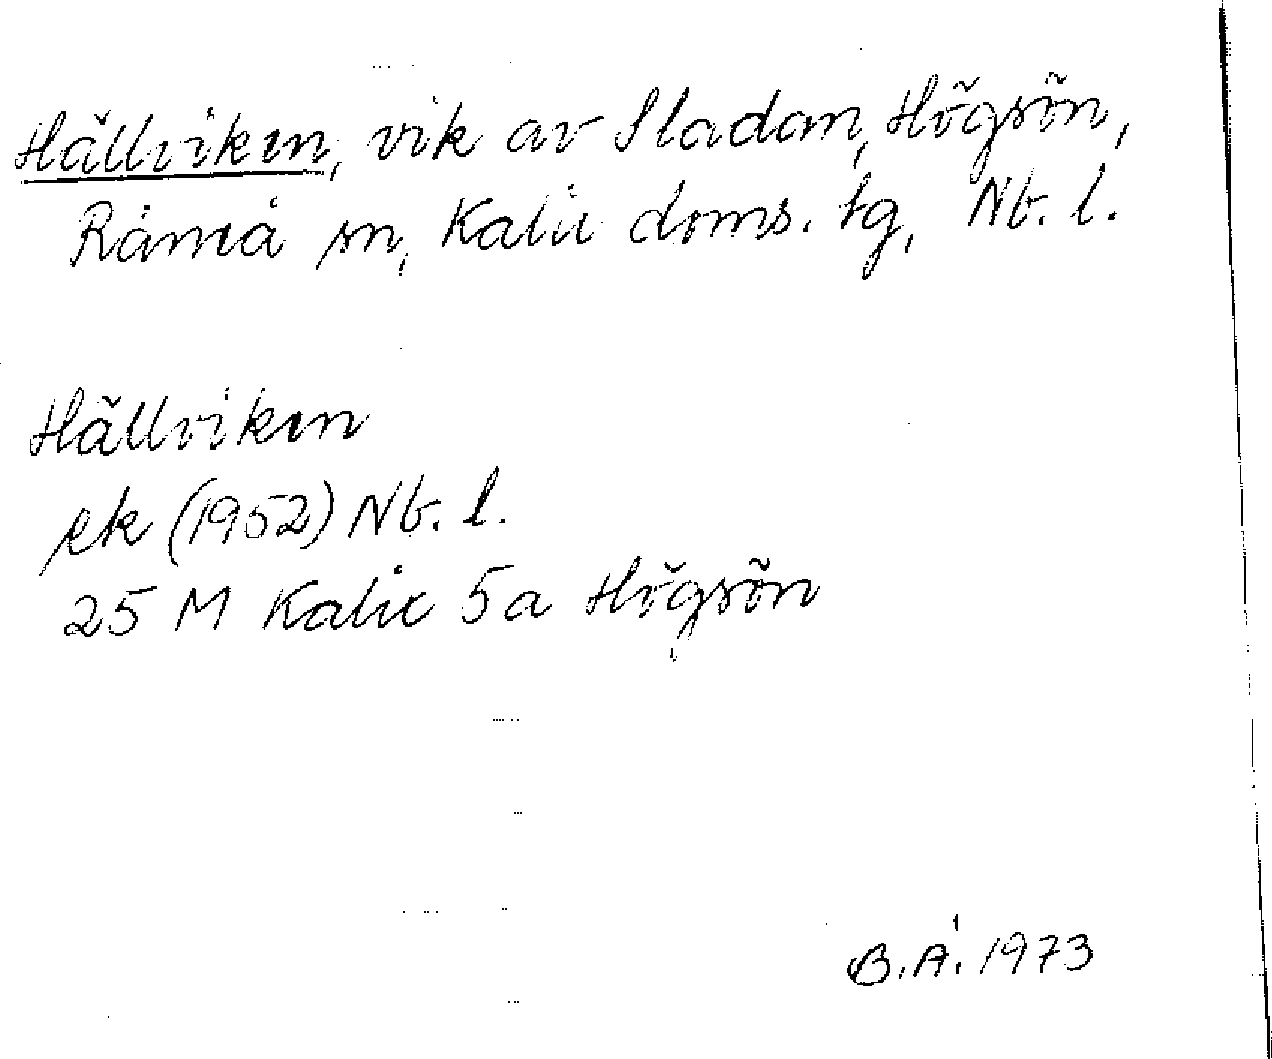 Hällviken, vik av Sladan, Högsön,
Råneå sn, Kalix doms. tg, Nb. l.
Hällviken
ek (1952) Nb. l.
25 M Kalix 5a Högsön
B.Å. 1973